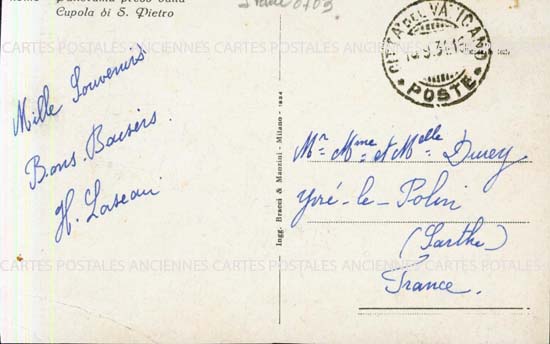 Roma - Panorama preso dalla
Cupola di S. Pietro
CITTA DEL VATICANO
POSTE
Mille Souvenirs
Bons Baisers.
Ing. Bracci & Mancini - Milano -
Mr. Mme. et Melle. Durey
Yvré-le-Polin
(Sarthe)
France.
CARTES POSTALES ANCIENNES CARTES POSTALES ANCIENNES CARTES POSTALES ANCIENNES
CARTES POSTALES ANCIENNES CARTES POSTALES ANCIENNES CARTES POSTALES ANCIENNES